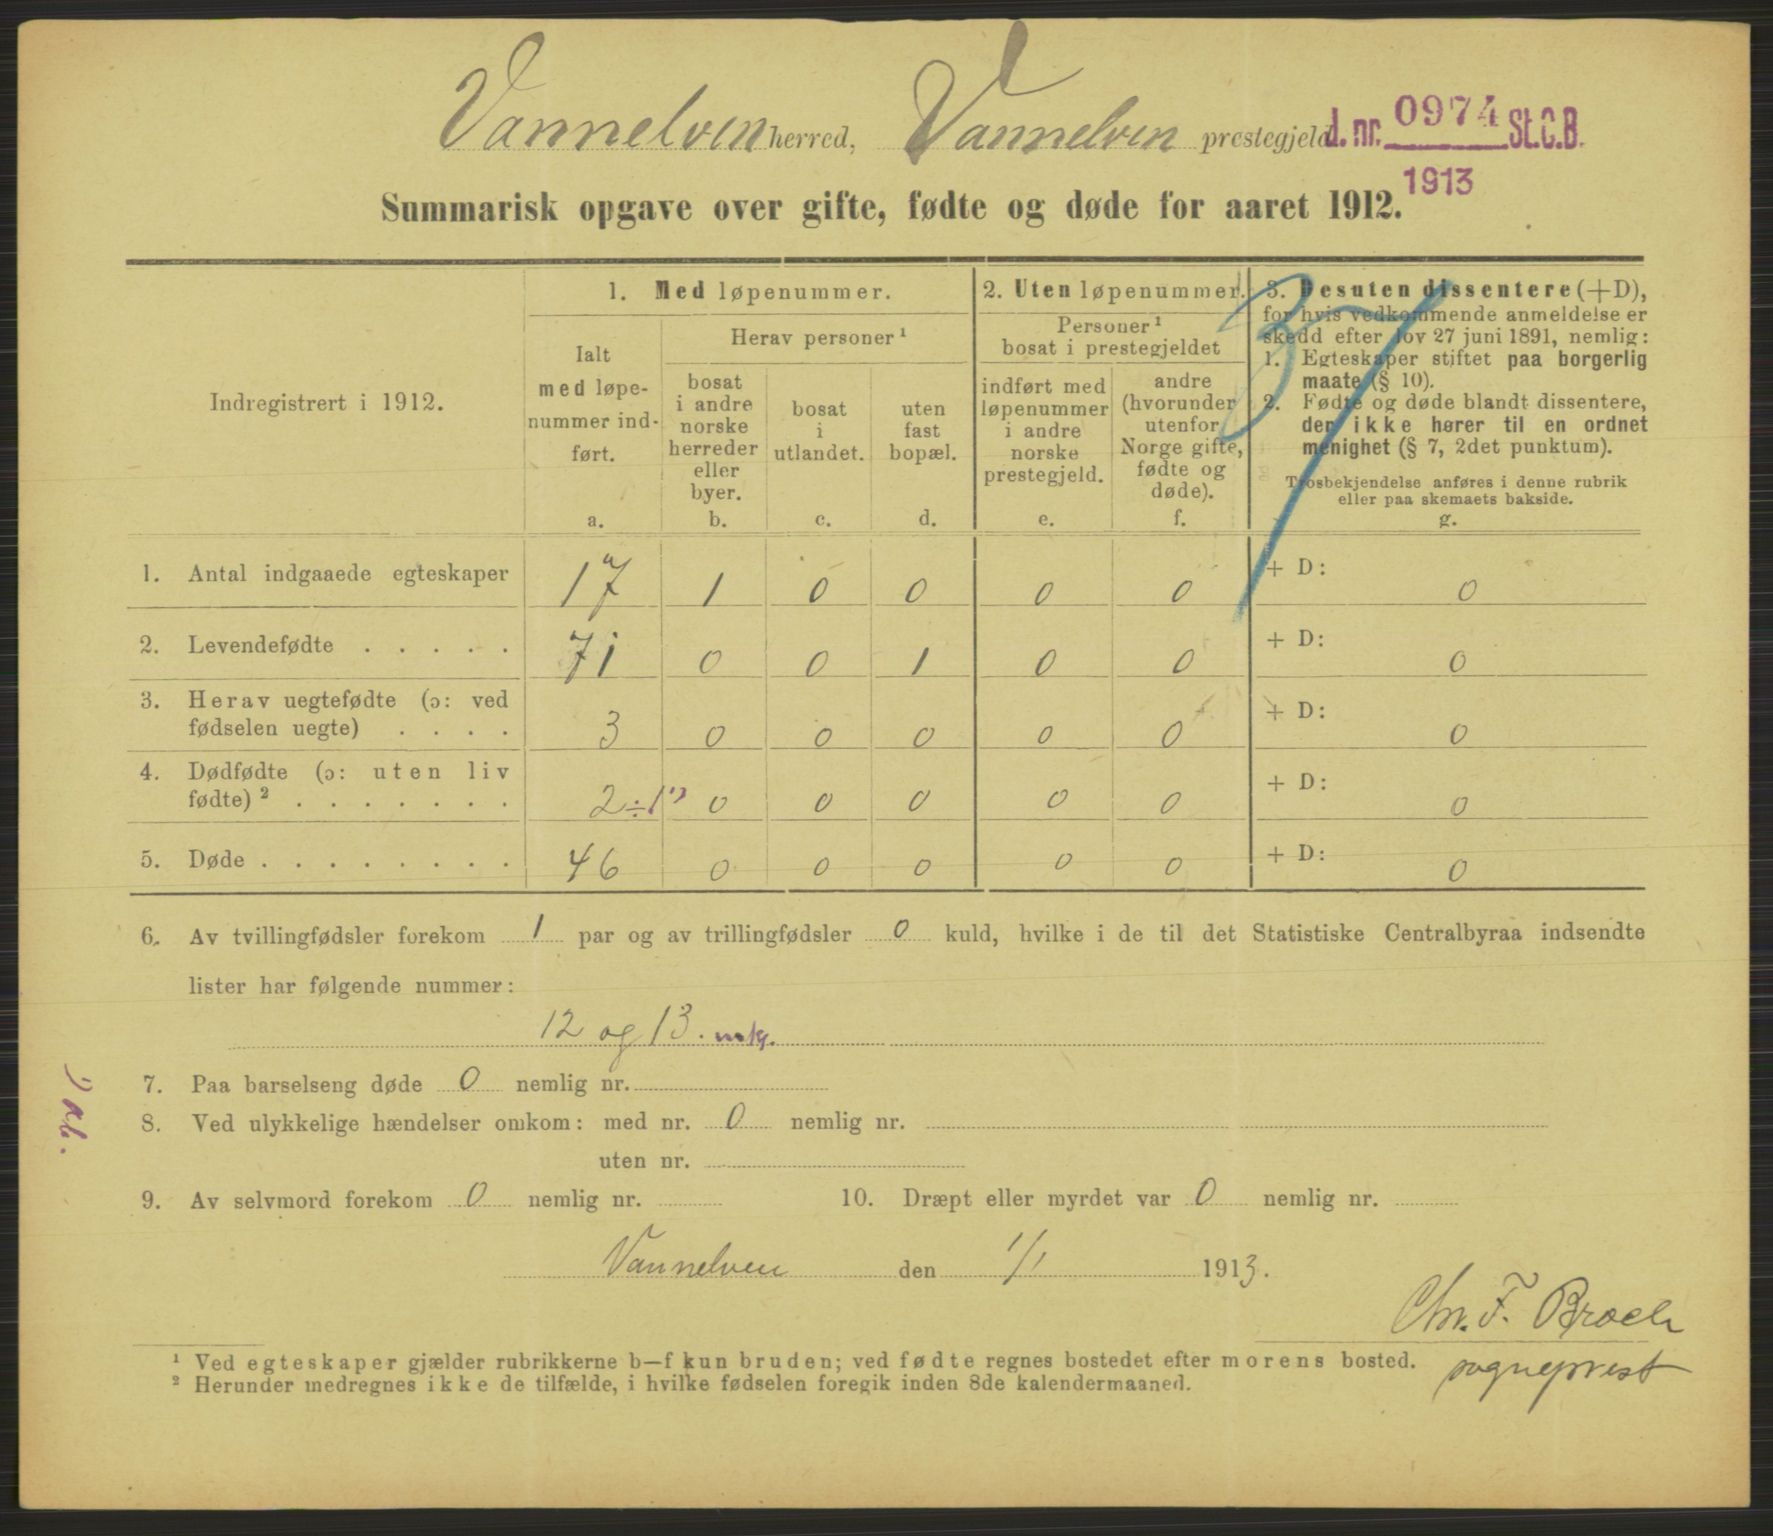 Vannelven herred, Vannelven prestegjeld. d. nr. 0974 St.C.B.
1913
Summarisk opgave over gifte, fødte og døde for aaret 1912.
Indregistrert i 1912.
1. Med løpenummer.
Ialt
med løpe-
nummer ind-
ført.
a.
Herav personer ¹
bosat
i andre
norske
herreder
eller
byer.
b.
bosat
i
utlandet.
c.
uten
fast
bopæl.
d.
2. Uten løpenummer.
Personer ¹
bosat i prestegjeldet
indført med
løpenummer
i andre
norske
prestegjeld.
e.
andre
(hvorunder
utenfor
Norge gifte,
fødte og
døde).
f.
3. Desuten dissentere (+D),
for hvis vedkommende anmeldelse er
skedd efter lov 27 juni 1891, nemlig:
1. Egteskaper stiftet paa borgerlig
maate (§ 10).
2. Fødte og døde blandt dissentere,
der ikke hører til en ordnet
menighet (§ 7, 2det punktum).
Trosbekjendelse anføres i denne rubrik
eller paa skemaets bakside.
g.
1. Antal indgaaede egteskaper 17 1 0 0 0 0 + D: 0
2. Levendefødte . . . . . 71 0 0 1 0 0 + D: 0
3. Herav uegtefødte (ɔ: ved
fødselen uegte) . . . . 3 0 0 0 0 0 + D: 0
4. Dødfødte (ɔ: uten liv
fødte) ² . . . . . . . 2÷1 ") 0 0 0 0 0 + D: 0
5. Døde . . . . . . . . 46 0 0 0 0 0 + D: 0
6. Av tvillingfødsler forekom 1 par og av trillingfødsler 0 kuld, hvilke i de til det Statistiske Centralbyraa indsendte
lister har følgende nummer:
12 og 13. mkj.
7. Paa barselseng døde 0 nemlig nr.
8. Ved ulykkelige hændelser omkom: med nr. 0 nemlig nr.
uten nr.
9. Av selvmord forekom 0 nemlig nr. 10. Dræpt eller myrdet var 0 nemlig nr.
Vannelven den 1/1 1913.
Chr. F. Broch
sogneprest
¹ Ved egteskaper gjælder rubrikkerne b—f kun bruden; ved fødte regnes bostedet efter morens bosted.
² Herunder medregnes ikke de tilfælde, i hvilke fødselen foregik inden 8de kalendermaaned.